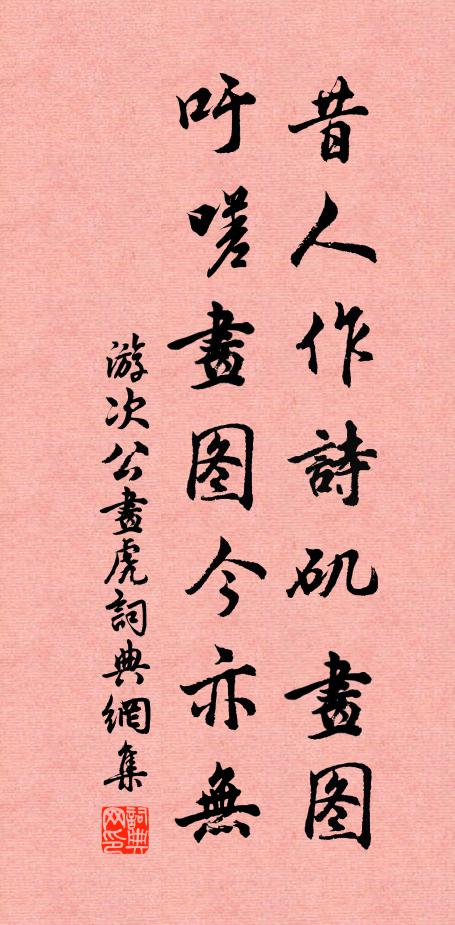 昔人作詩矶畫图
吁嗟畫图今亦無
游次公畫虎詞典網集
詞典网印